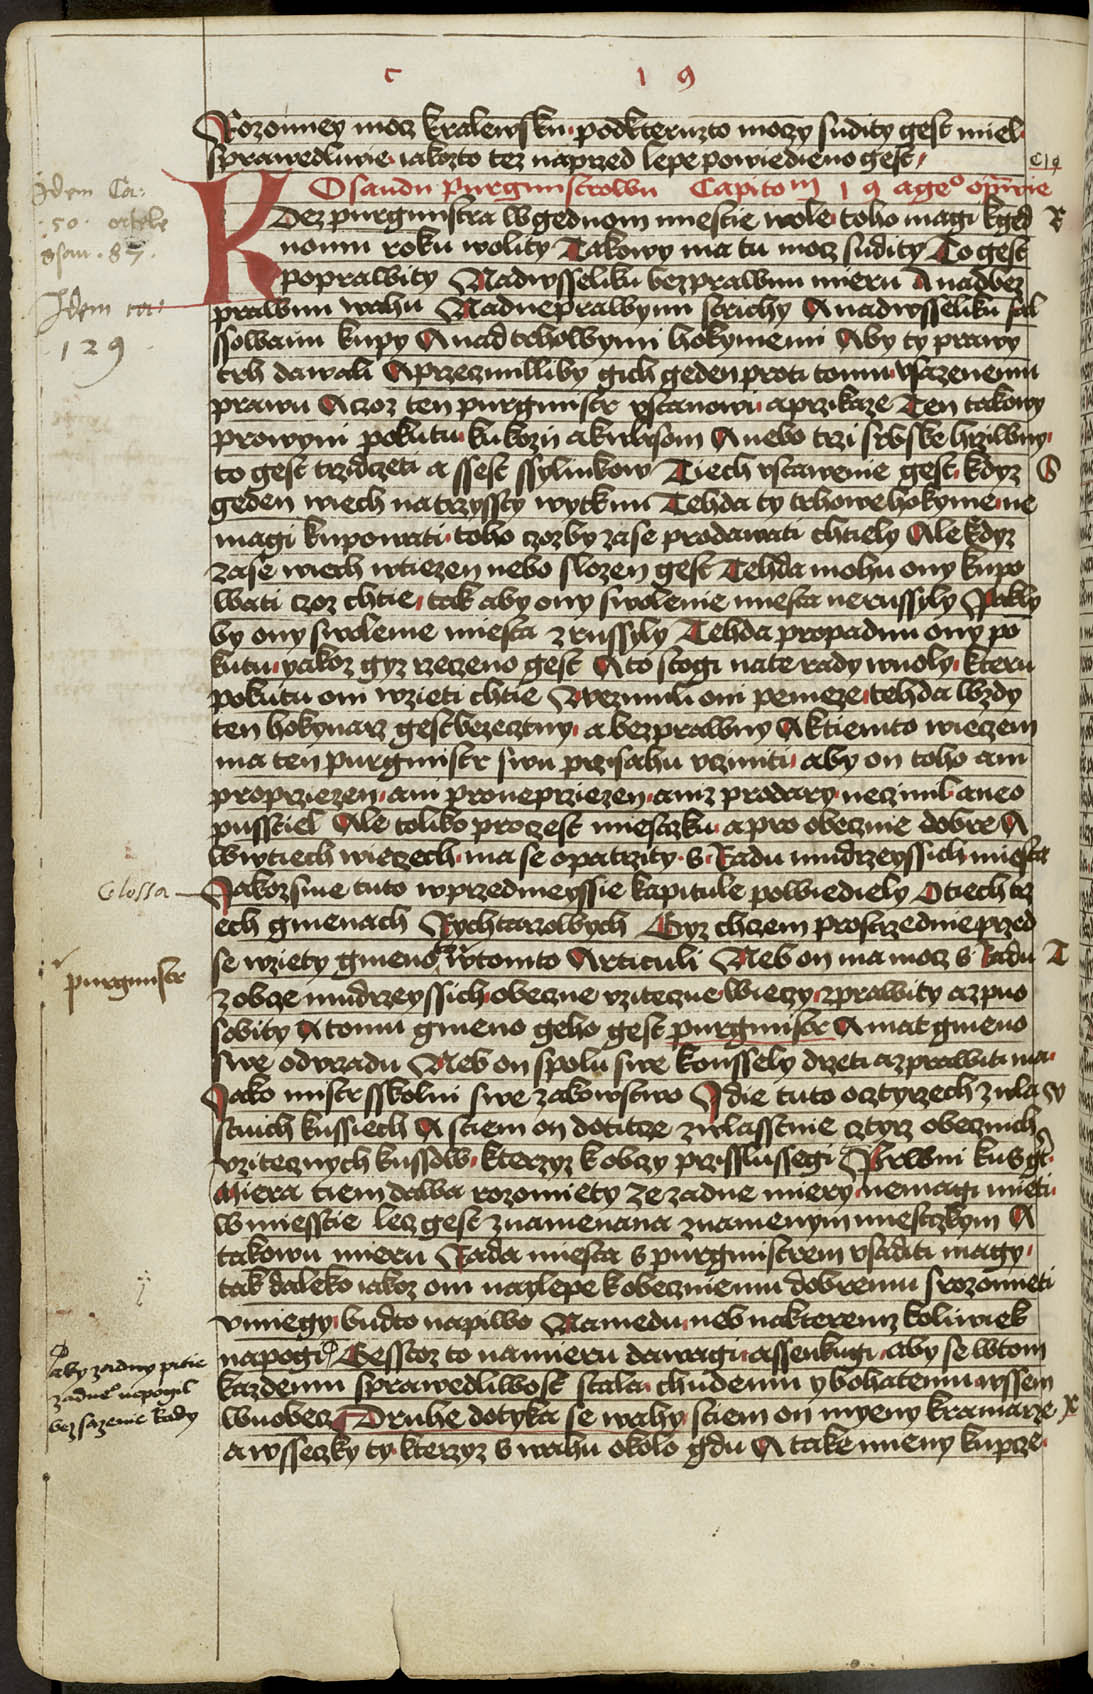 C 19
Rozonney mocz kralewsku podkteruzto moczy sudity gest miel
sprawedliwie iakozto tez naprzed lepe powiedieno gest
C 19
O saudu purgmistrowu Capitom 19 a geo oprawie
Kdez purgmistra w gednom miestie wole toho magi kged R
nomu roku wolity Takowy ma tu mocz sudity To gest
poprawity Nadwsseliku bezprawnu mieru A nadbez
prawnu wahu Nadneprawymi strichy A nadwsseliku fal
ssowanu kupy A nad trhowymi hokynemi Aby ty prawy
trh dawali A przeczinilliby gich geden proti tomu vsazenemu
prawu A czoz ten purgmistr vstanowi a przikaze Ten takowy
prowyni pokutu kukozij a kwlasom A nebo trzi srbske hrziwny
to gest trzidczeti a ssest ssylinkow Tiech vstawenie gest kdyz S
geden wiech na trzyssty wytknu Tehda ty trhowe hokymenie
magi kupowati toho czozby zase prodawati chtiely Ale kdyz
zase wiech wtiezen nebo slozen gest Tehda mohu ony kupo
wati czoz chtie tak aby ony swolenie miesta nerussyly Pakly
by ony swolenie miesta zrussyly Tehda propadnu ony po
kutu yakoz gyz rzeczeno gest A to stogi na te rady wuoly kteru
pokutu oni wzieti chtie Wezmuli oni penieze tehda wzdy
ten hokynarz gest bezectny a bezprawny A ktiemto wieczem
ma ten purgmistr swu przisahu vcziniti aby on toho ani
pro prziezen ani pro neprziezen aniz pro dary neczinil a neo
pusstiel Ale toliko pro czest miesczku a pro obecznie dobre A
w wtiech wieczech ma se opatrzity s Radu mudrzeyssich miesta
Glossa Jakoz sme tuto w przedmeyssie kapitule powiediely O tiech trz
ech gmenach Rychtarzowych Gyz chczem prostrzednie przed
se wziety gmeno w tomto Articuli Neb on ma mocz s Radu T
z obcze mudrzeyssich obeczne vziteczne wieczy zprawity a zpuo
sobity A tomu gmeno geho gest purgmistr A mat gmeno
swe od vradu Neb on spolu swe konssely drzeti a zprawiti ma
Jako mistr sskolni swe zakowstwo J die tuto o cztyrzech zwla V
stnich kussiech A stiem on dotitcze zwlasstnie cztyrz obecznich
vzitecznych kussow kterzyz k obczy przisslussegi Prwni kus gt
Miera tiem dawa rozomiety ze zadne miery nemagi mieti
w miesstie lecz gest znamenana znamenym miesczkym A
takowu mieru Rada miesta s purgmistrem vsaditi magy
tak daleko iakoz oni naylepe k obecznemu dobremu srozomieti
vmiegy budto na piwo Na medu neb na kteremz koliwiek
napogi Gesstoz to na mieru dawagi a ssenkugi aby se w tom
kazdemu sprawedliwost stala chudemu y bohatemu wssem
wuobecz Druhe dotyka se wahy stiem on myeny kramarze X
a wsseczky ty kterzyz s wahu okolo gdu A take mieny kupcze
Jdem Ca:
50 ortele
Jdem ca:
129
purgmistr
aby zadny pitie
zadneo nepogil
bez sazenie Rady